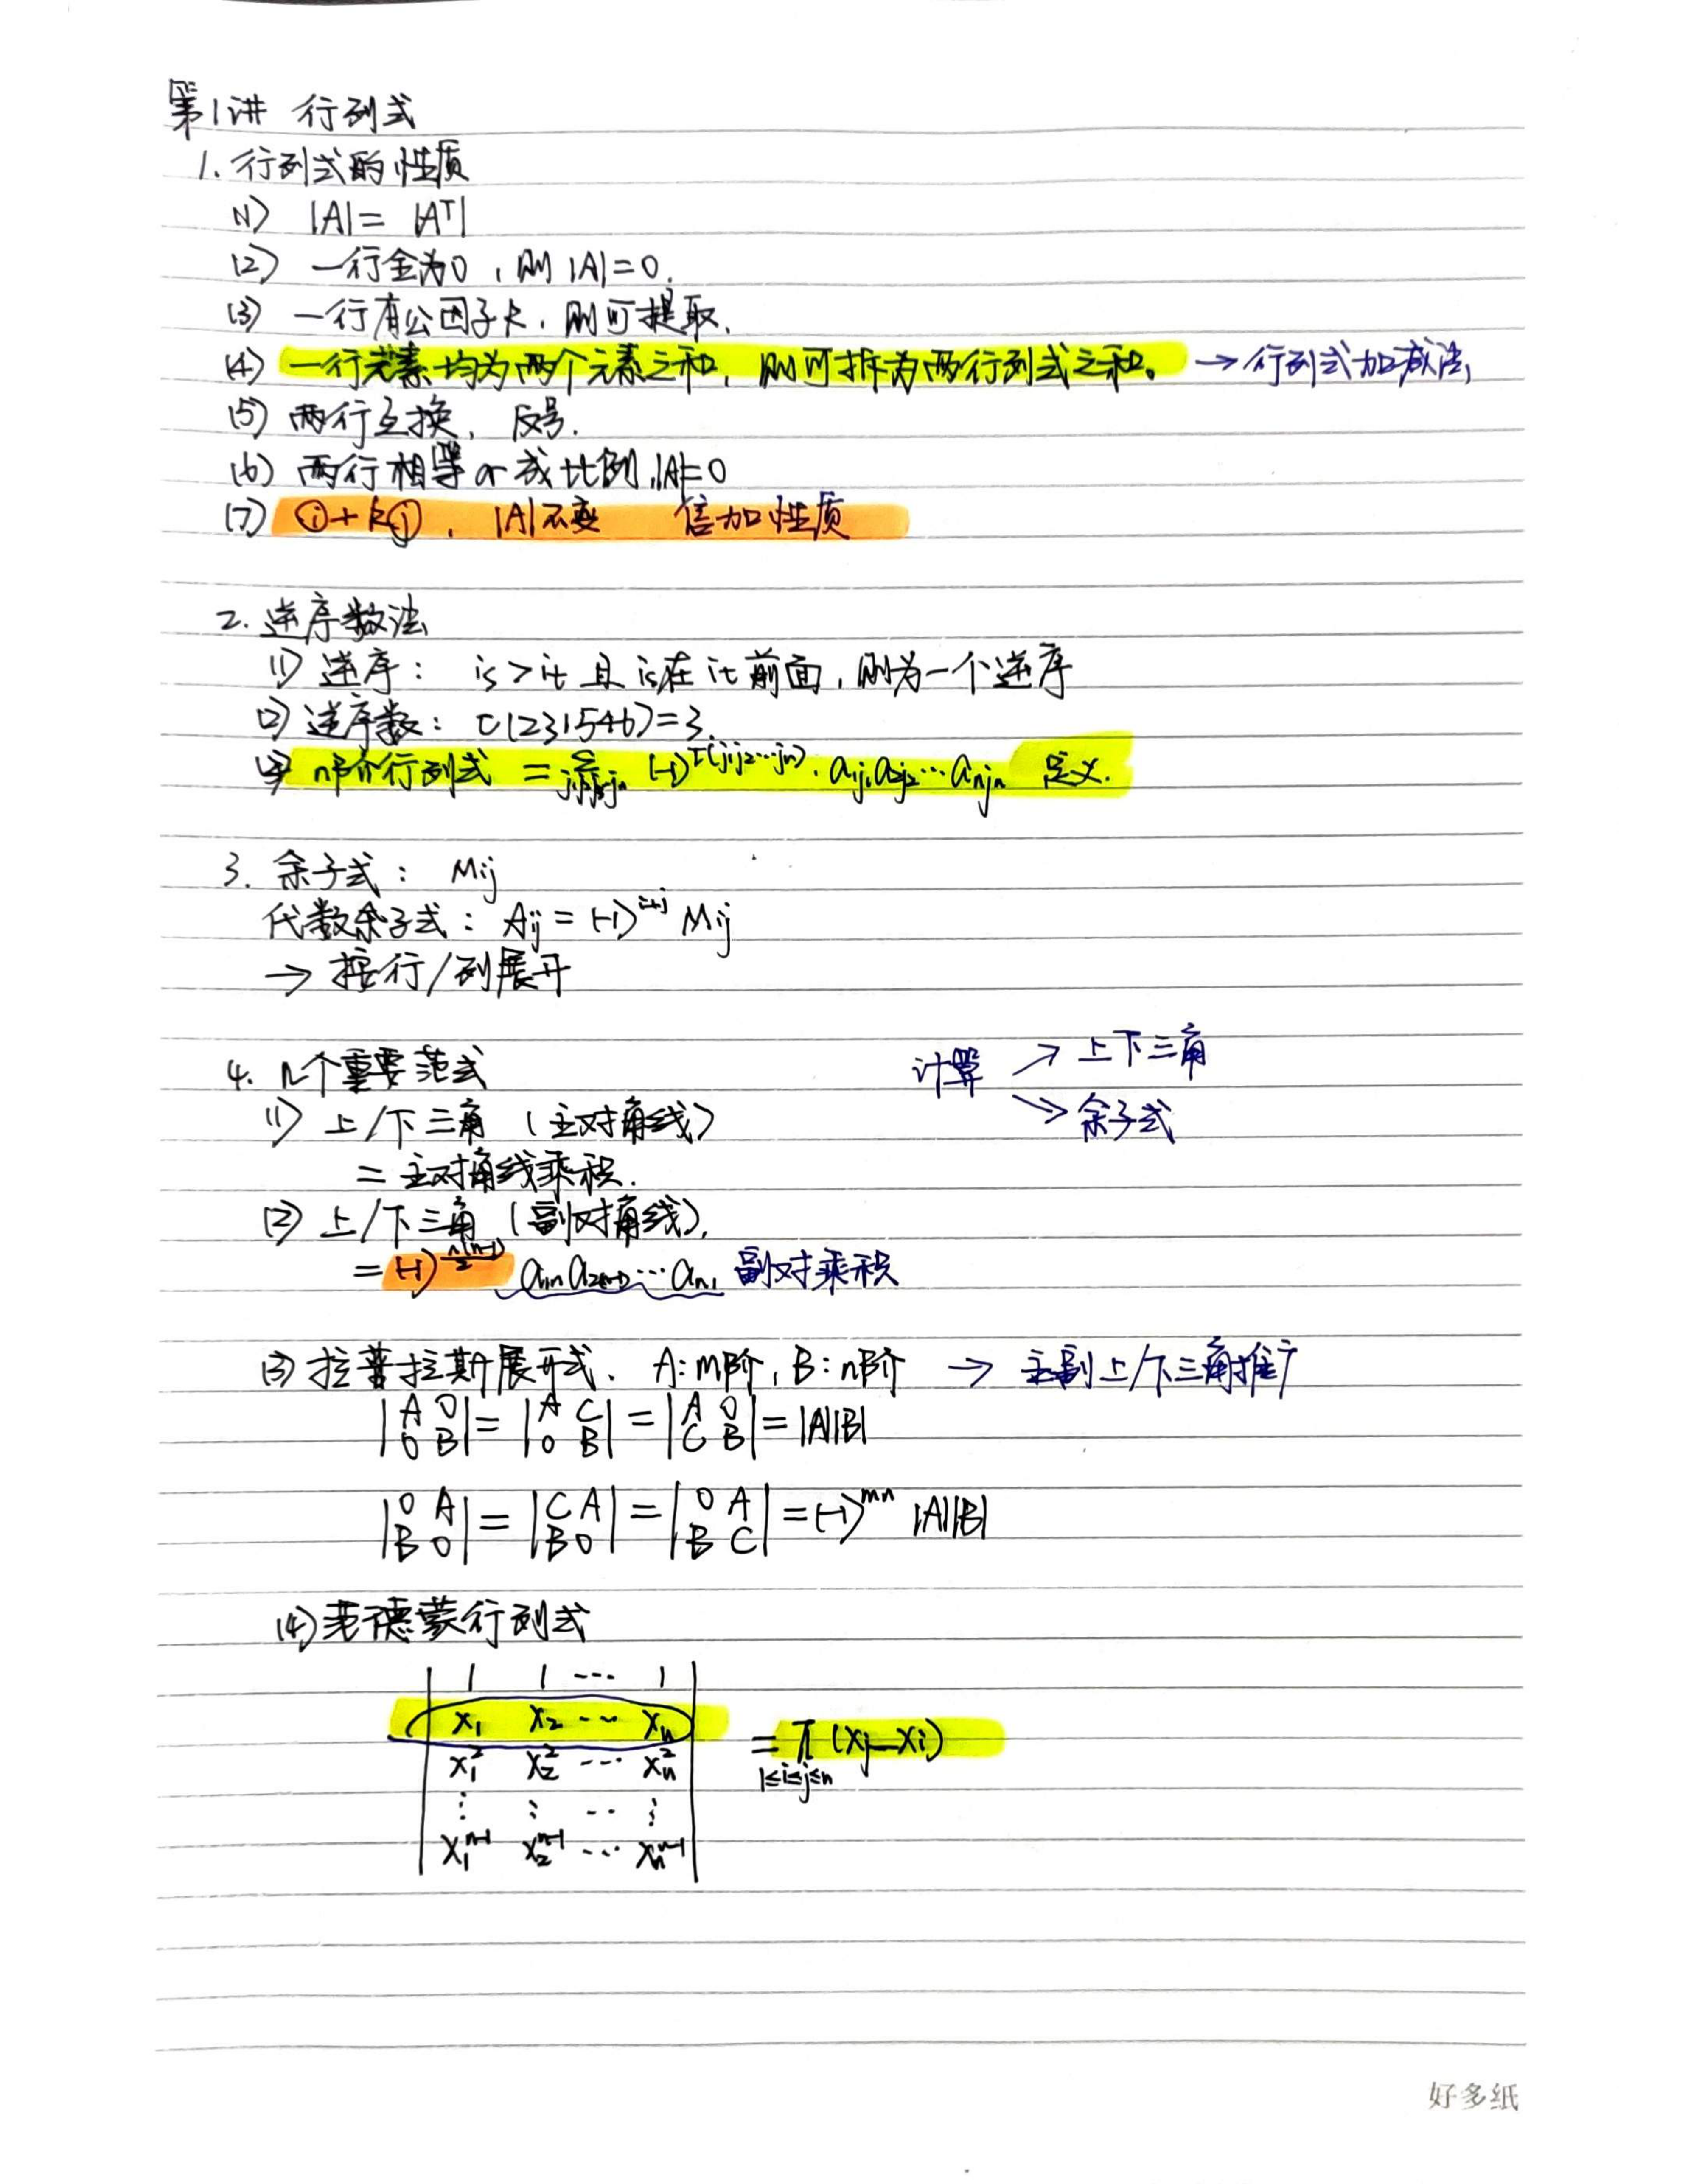 第1讲 行列式
1. 行列式的性质
(1) |A| = |Aᵀ|
(2) 一行全为0，则|A|=0.
(3) 一行有公因子k，则可提取.
(4) 一行元素均为两个元素之和，则可拆为两行列式之和。→行列式加减法，
(5) 两行互换，反号.
(6) 两行相等or成比例，|A|=0
(7) ⓘ+kⓙ，|A|不变 倍加性质
2. 逆序数法
(1) 逆序： iₛ>iₜ 且 iₛ在iₜ前面，则为一个逆序
(2) 逆序数：τ(231546)=3.
n阶行列式 = Σ_{j₁j₂…jₙ} (-1)^{τ(j₁j₂…jₙ)}·a₁ⱼ₁a₂ⱼ₂…aₙⱼₙ 定义.
3. 余子式： Mij
代数余子式：Aij = (-1)^{i+j} Mij
→ 按行/列展开
4. 几个重要范式
计算 ↗ 上下三角
↘ 余子式
(1) 上/下三角（主对角线）
= 主对角线乘积.
(2) 上/下三角（副对角线）.
= (-1)^{n(n-1)/2} a₁ₙa₂₍ₙ₋₁₎…aₙ₁ 副对乘积
(3) 拉普拉斯展开式、A:m阶，B:n阶 → 主副上/下三角推广
|A 0; 0 B| = |A C; 0 B| = |A 0; C B| = |A||B|
|0 A; B 0| = |C A; B 0| = |0 A; B C| = (-1)^{mn} |A||B|
(4) 范德蒙行列式
1 1 … 1
x₁ x₂ … xₙ
= Π_{1≤i≤j≤n} (xj-xi)
x₁² x₂² … xₙ²
⋮ ⋮ … ⋮
x₁ⁿ⁻¹ x₂ⁿ⁻¹ … xₙⁿ⁻¹
好多纸